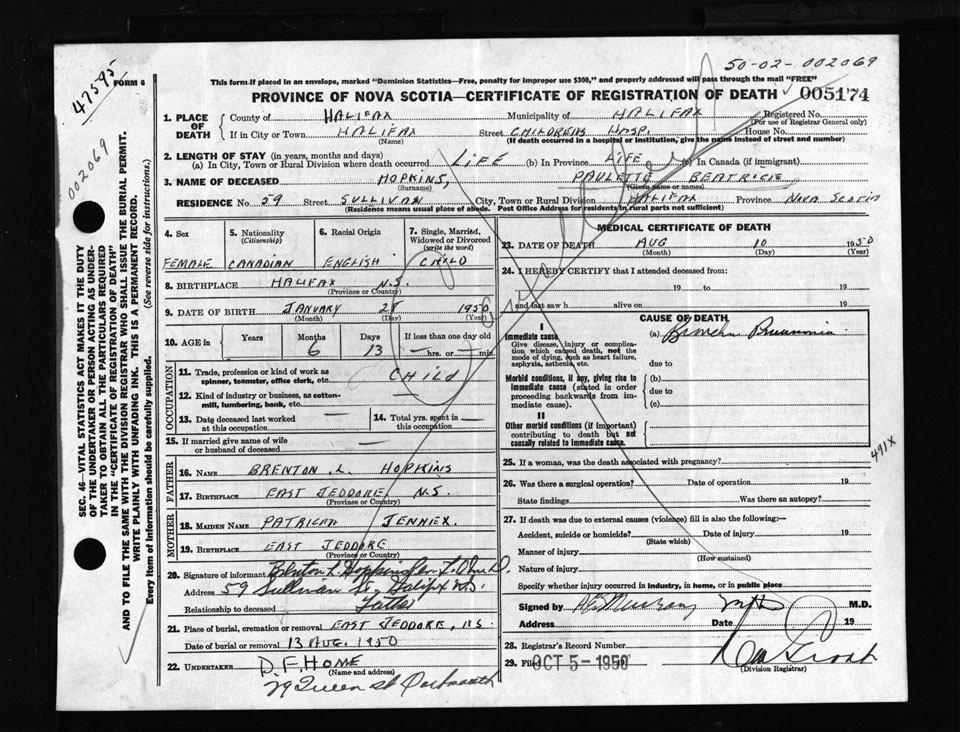 50-02-002069
47595
002069
FORM 6
This form if placed in an envelope, marked "Dominion Statistics—Free, penalty for improper use $300," and properly addressed will pass through the mail "FREE"
PROVINCE OF NOVA SCOTIA—CERTIFICATE OF REGISTRATION OF DEATH 005174
SEC. 46—VITAL STATISTICS ACT MAKES IT THE DUTY
OF THE UNDERTAKER OR PERSON ACTING AS UNDER-
TAKER TO OBTAIN ALL THE PARTICULARS REQUIRED
IN THE "CERTIFICATE OF REGISTRATION OF DEATH"
AND TO FILE THE SAME WITH THE DIVISION REGISTRAR WHO SHALL ISSUE THE BURIAL PERMIT.
WRITE PLAINLY WITH UNFADING INK. THIS IS A PERMANENT RECORD.
Every item of Information should be carefully supplied. (See reverse side for instructions.)
1. PLACE OF DEATH County of HALIFAX Municipality of HALIFAX Registered No.
(For use of Registrar General only)
If in City or Town HALIFAX Street CHILDRENS HOSP. House No.
(Name) (If death occurred in a hospital or institution, give the name instead of street and number)
2. LENGTH OF STAY (in years, months and days)
(a) In City, Town or Rural Division where death occurred LIFE (b) In Province LIFE (c) In Canada (if immigrant)
3. NAME OF DECEASED HOPKINS, PAULETTE BEATRICE
(Surname) (Given name or names)
RESIDENCE No 59 Street SULLIVAN City, Town or Rural Division HALIFAX Province NOVA SCOTIA
(Residence means usual place of abode. Post Office Address for residents in rural parts not sufficient)
4. Sex 5. Nationality (Citizenship) 6. Racial Origin 7. Single, Married, Widowed or Divorced (write the word)
FEMALE CANADIAN ENGLISH CHILD
8. BIRTHPLACE HALIFAX N.S.
(Province or Country)
9. DATE OF BIRTH JANUARY 28 1950
(Month) (Day) (Year)
10. AGE in Years Months Days If less than one day old
6 13 hrs. or min.
OCCUPATION
11. Trade, profession or kind of work as spinner, teamster, office clerk, etc. CHILD
12. Kind of industry or business, as cotton-mill, lumbering, bank, etc.
13. Date deceased last worked at this occupation 14. Total yrs. spent in this occupation
15. If married give name of wife or husband of deceased
FATHER
16. NAME BRENTON L. HOPKINS
17. BIRTHPLACE EAST JEDDORE, N.S.
(Province or Country)
MOTHER
18. MAIDEN NAME PATRICIA JENNEX.
19. BIRTHPLACE EAST JEDDORE
(Province or Country)
20. Signature of informant Brenton L. Hopkins
Address 59 Sullivan St. Halifax N.S.
Relationship to deceased Father
21. Place of burial, cremation or removal EAST JEDDORE, N.S.
Date of burial or removal 13 AUG. 1950
22. UNDERTAKER D. F. HOME
(Name and address)
29 Queen St Dartmouth
MEDICAL CERTIFICATE OF DEATH
23. DATE OF DEATH AUG 10 1950
(Month) (Day) (Year)
24. I HEREBY CERTIFY that I attended deceased from:
19 to 19
and last saw h alive on 19
CAUSE OF DEATH
I
Immediate cause (a) Broncho Pneumonia
Give disease, injury or complication which caused death, not the mode of dying, such as heart failure, asphyxia, asthenia, etc.
due to
Morbid conditions, if any, giving rise to immediate cause (stated in order proceeding backwards from immediate cause).
(b)
due to
(c)
II
Other morbid conditions (if important) contributing to death but not causally related to immediate cause.
491X
25. If a woman, was the death associated with pregnancy?
26. Was there a surgical operation? Date of operation 19
State findings Was there an autopsy?
27. If death was due to external causes (violence) fill in also the following:—
Accident, suicide or homicide? Date of injury 19
(State which)
Manner of injury
(How sustained)
Nature of injury
Specify whether injury occurred in industry, in home, or in public place
Signed by M.D.
Address Date 19
28. Registrar's Record Number
29. Filed OCT 5 - 1950
(Division Registrar)